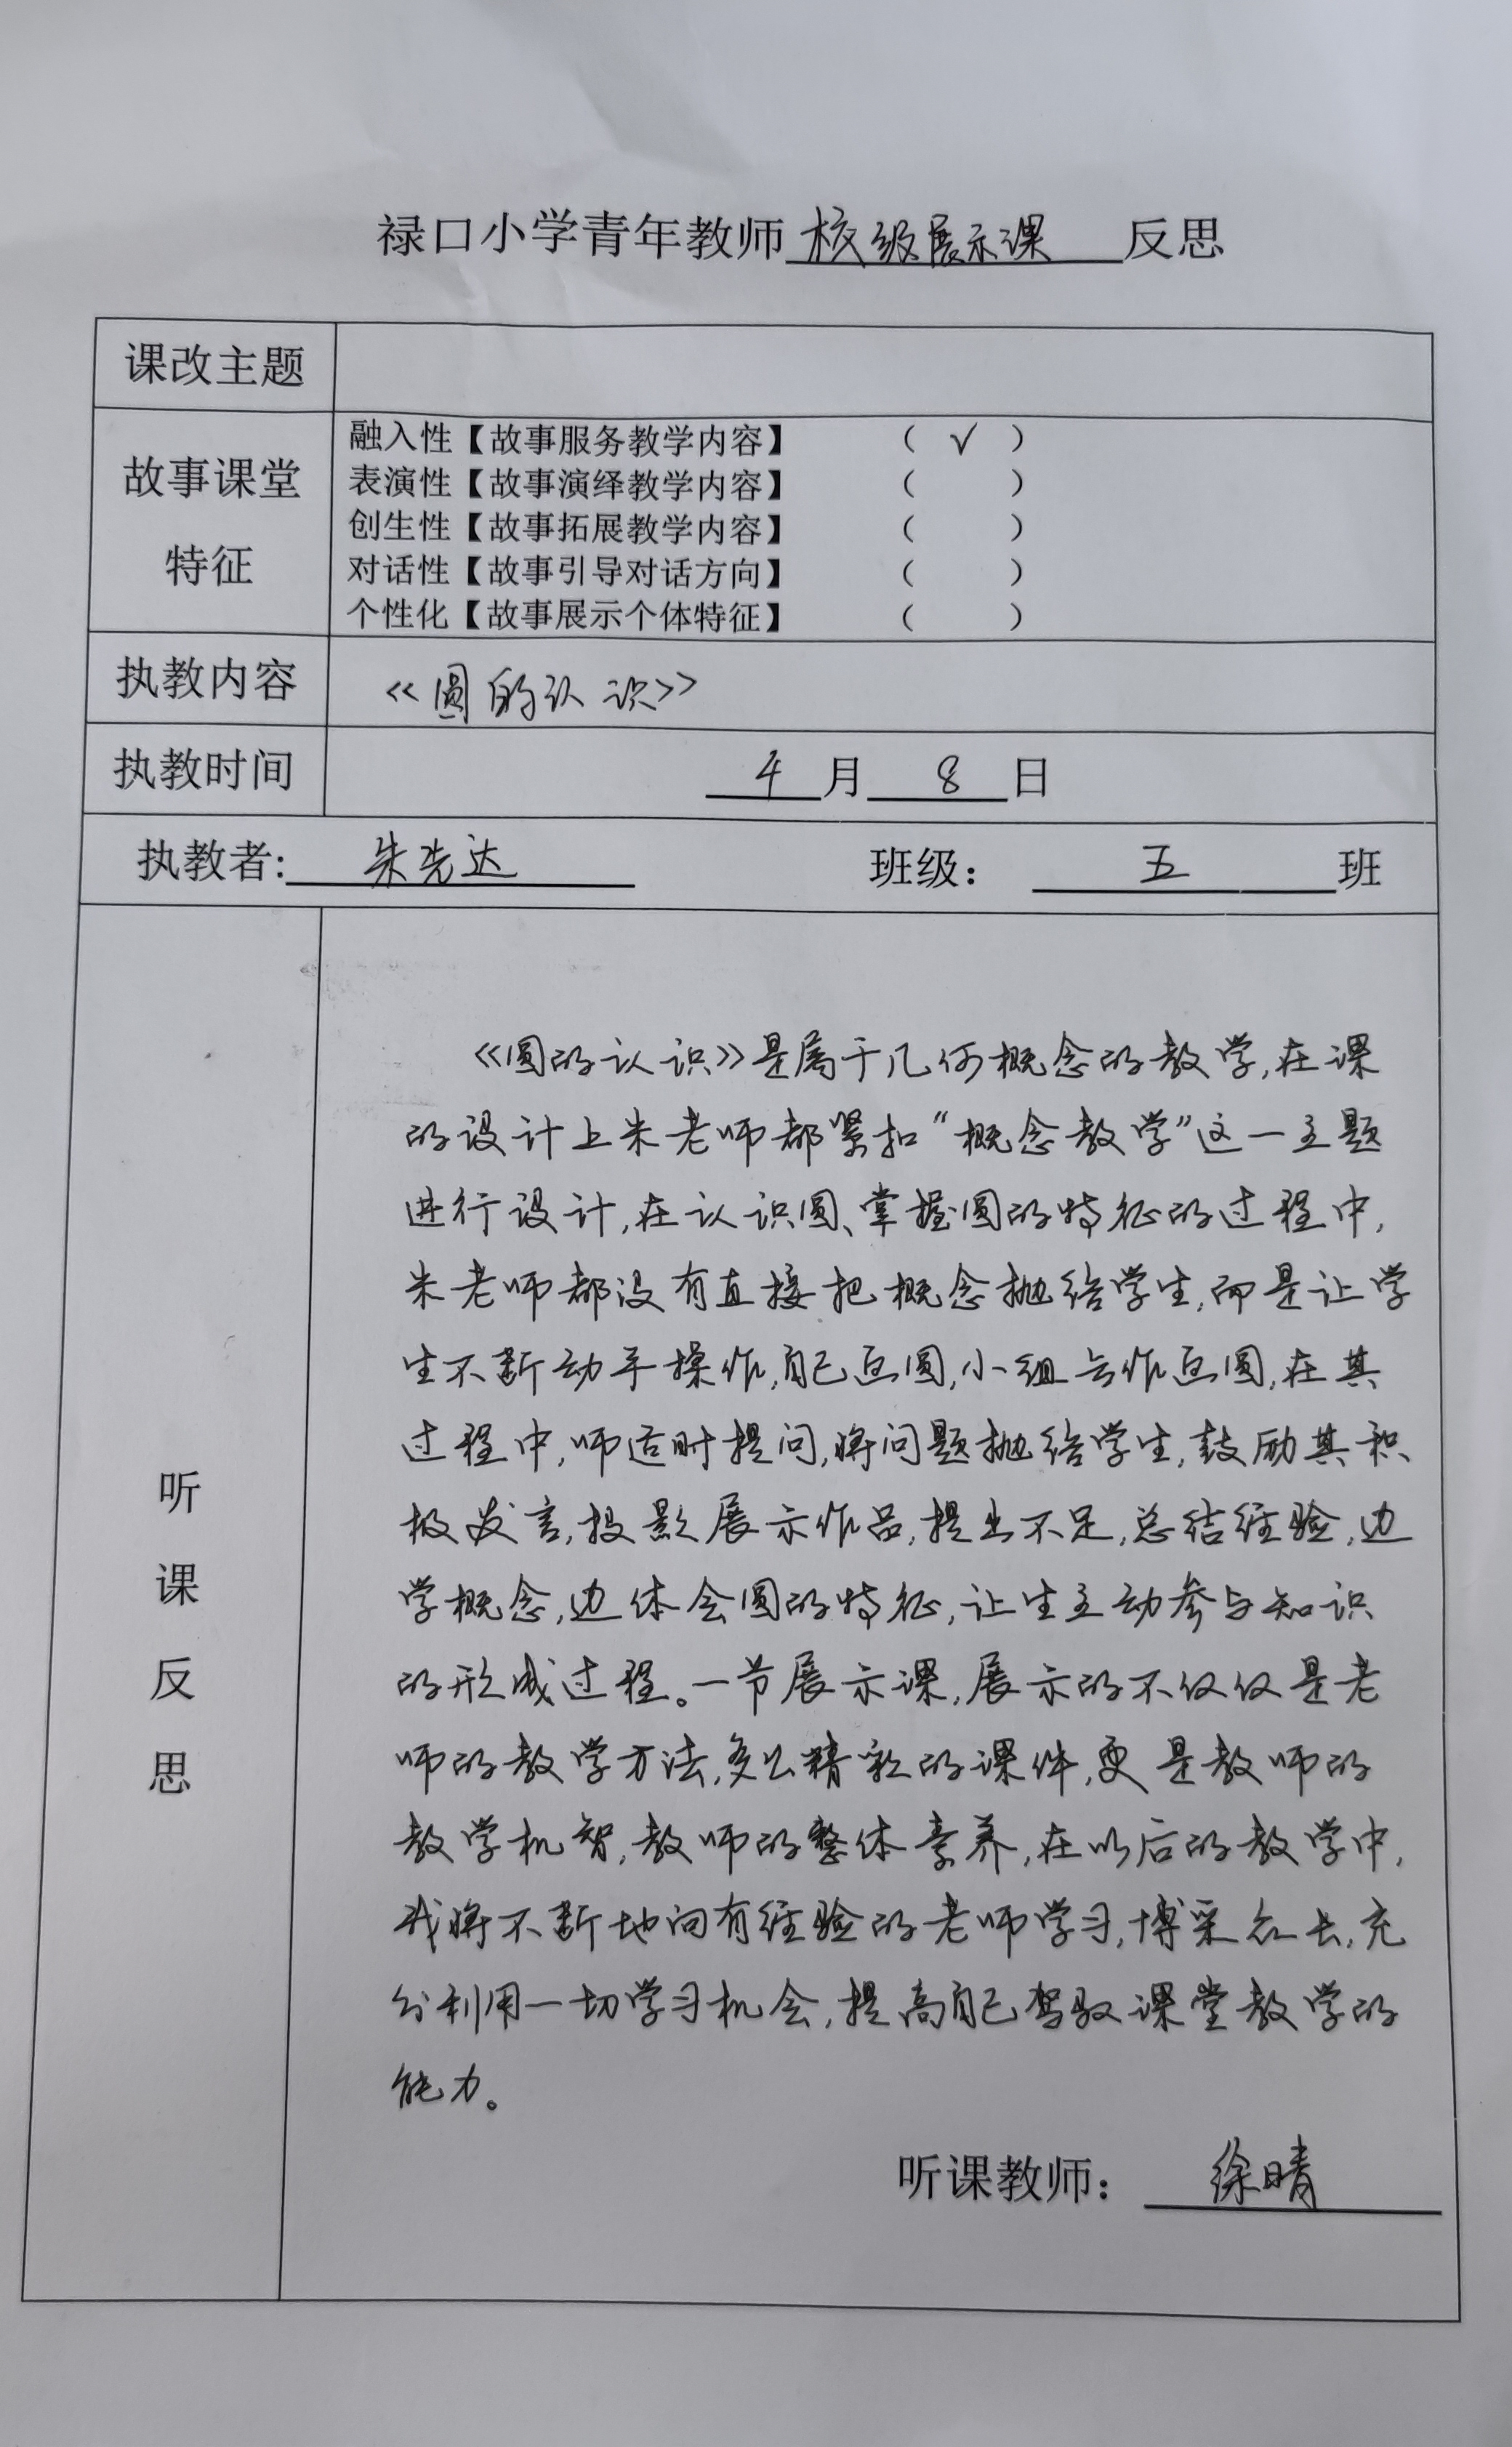 禄口小学青年教师 校级展示课 反思
课改主题
故事课堂
特征
融入性【故事服务教学内容】 （ √ ）
表演性【故事演绎教学内容】 （ ）
创生性【故事拓展教学内容】 （ ）
对话性【故事引导对话方向】 （ ）
个性化【故事展示个体特征】 （ ）
执教内容 《圆的认识》
执教时间 4 月 8 日
执教者: 朱先达 班级： 五 班
听课反思
《圆的认识》是属于几何概念的教学,在课
的设计上朱老师都紧扣“概念教学”这一主题
进行设计,在认识圆、掌握圆的特征的过程中,
朱老师都没有直接把概念抛给学生,而是让学
生不断动手操作,自己画圆,小组合作画圆,在其
过程中,师适时提问,将问题抛给学生,鼓励其积
极发言,投影展示作品,提出不足,总结经验,边
学概念,边体会圆的特征,让生主动参与知识
的形成过程。一节展示课,展示的不仅仅是老
师的教学方法,多么精彩的课件,更是教师的
教学机智,教师的整体素养,在以后的教学中,
我将不断地向有经验的老师学习,博采众长,充
分利用一切学习机会,提高自己驾驭课堂教学的
能力。
听课教师： 徐晴